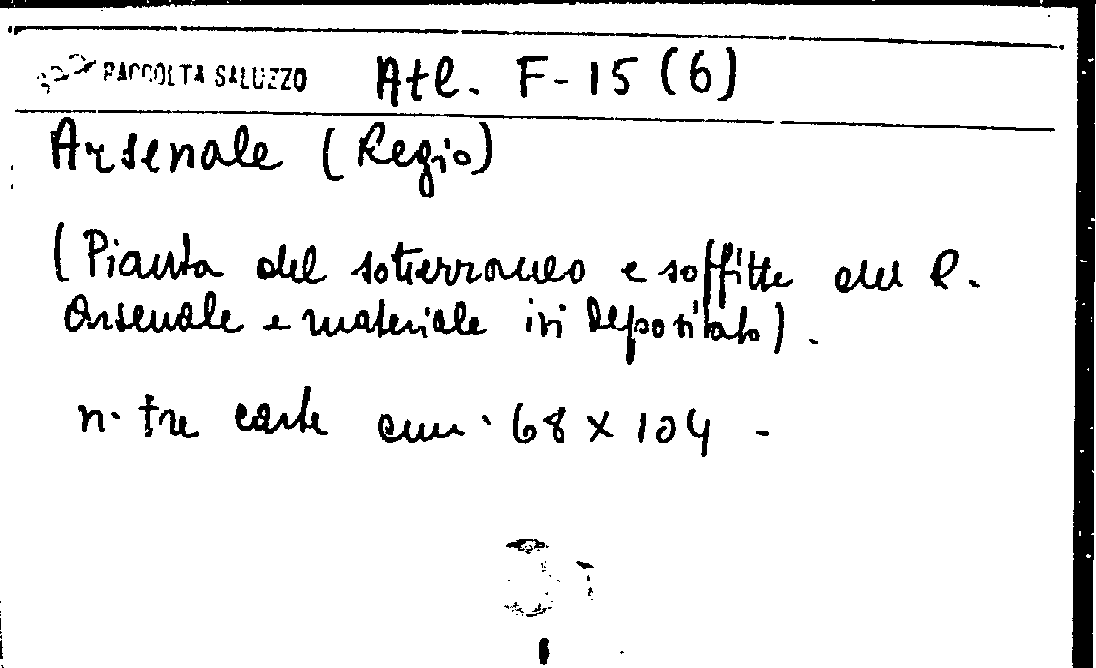 RACCOLTA SALUZZO Atl. F-15 (6)
Arsenale (Regio)
(Pianta del sotterraneo e soffitte del R.
Arsenale e materiale ivi depositato).
n. tre carte cm. 68 x 104 -